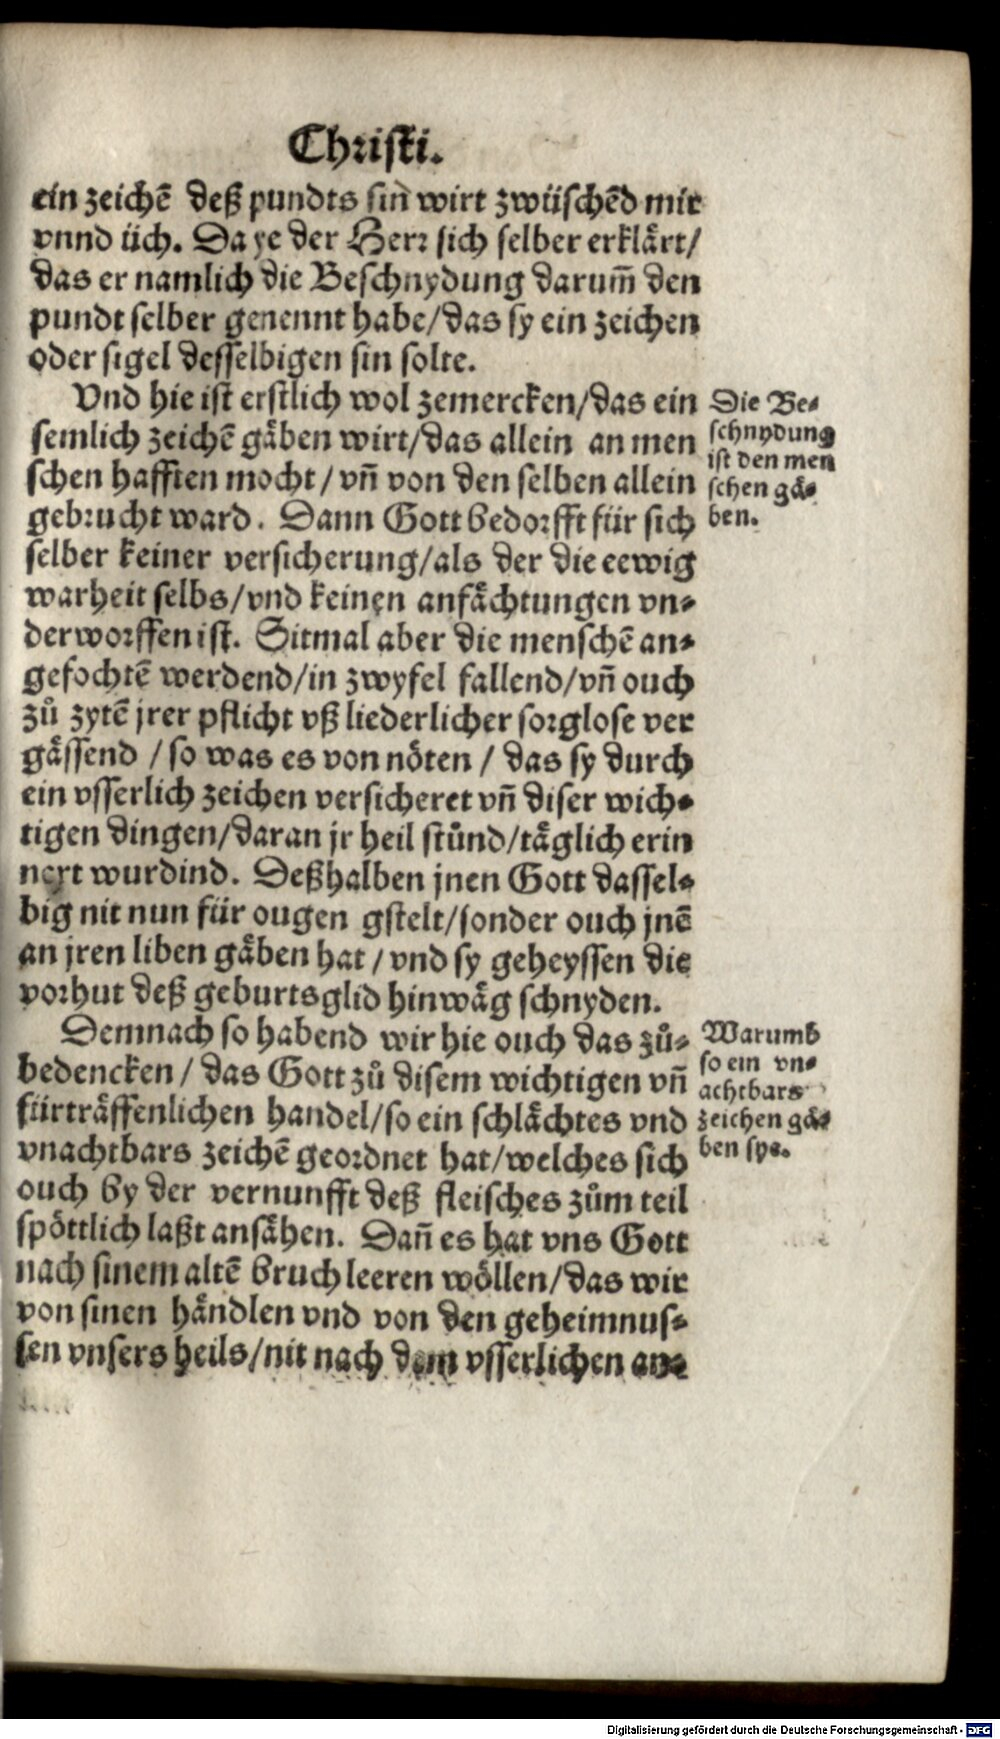 Christi.
ein zeichē deß pundts sin wirt zwüschēd mir
vnnd üch. Da ye der Herr sich selber erklärt/
das er namlich die Beschnydung darum̄ den
pundt selber genennt habe/das sy ein zeichen
oder sigel desselbigen sin solte.
Vnd hie ist erstlich wol zemercken/das ein
semlich zeichē gäben wirt/das allein an men
schen hafften mocht/vn̄ von den selben allein
gebrucht ward. Dann Gott bedorfft für sich
selber keiner versicherung/als der die eewig
warheit selbs/vnd keinen anfächtungen vn-
derworffen ist. Sitmal aber die menschē an-
gefochtē werdend/in zwyfel fallend/vn̄ ouch
zů zytē jrer pflicht vß liederlicher sorglose ver
gässend/so was es von nöten/das sy durch
ein vsserlich zeichen versicheret vn̄ diser wich-
tigen dingen/daran jr heil stůnd/täglich erin
nert wurdind. Deßhalben jnen Gott dassel-
big nit nun für ougen gstelt/sonder ouch jnē
an jren liben gäben hat/vnd sy geheyssen die
vorhut deß geburtsglid hinwäg schnyden.
Demnach so habend wir hie ouch das zů-
bedencken/das Gott zů disem wichtigen vn̄
fürträffenlichen handel/so ein schlächtes vnd
vnachtbars zeichē geordnet hat/welches sich
ouch by der vernunfft deß fleisches zům teil
spöttlich laßt ansähen. Dan̄ es hat vns Gott
nach sinem altē bruch leeren wöllen/das wir
von sinen händlen vnd von den geheimnus-
sen vnsers heils/nit nach dem vsserlichen an-
Die Be-
schnydung
ist den men
schen gä-
ben.
Warumb
so ein vn-
achtbars
zeichen gä-
ben sye.
Digitalisierung gefördert durch die Deutsche Forschungsgemeinschaft - DFG